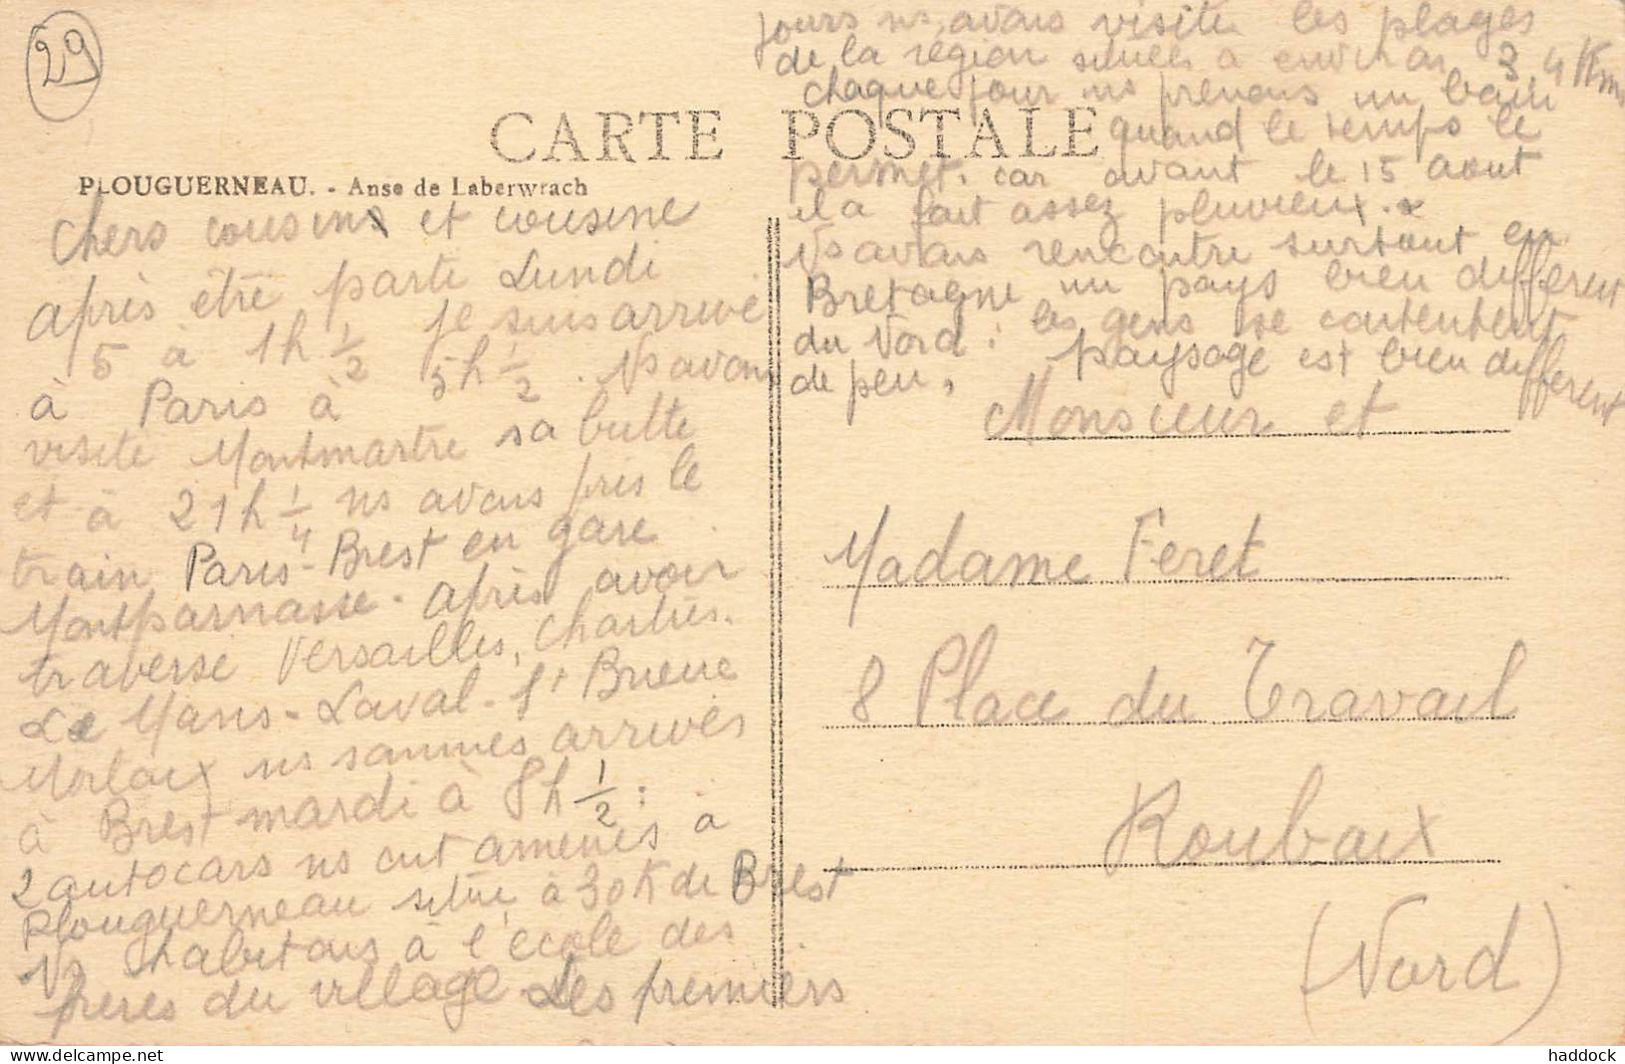 29
CARTE POSTALE
PLOUGUERNEAU. - Anse de Laberwrach
Chers cousins et cousine
après être parti Lundi
5 à 1h 1/2 je suis arrivé
à Paris à 5h 1/2. Ns avons
visité Montmartre sa butte
et à 21h 1/4 ns avons pris le
train Paris-Brest en gare
Montparnasse. après avoir
traversé Versailles, Chartres.
Le Mans - Laval - St Brieue
Morlaix ns sommes arrivés
à Brest mardi à 8h 1/2 :
2 autocars ns ont amenés à
Plouguerneau situé à 30K de Brest
Ns habitons à l'école des
frères du village. Les premiers
jours ns avons visité les plages
de la région situées à environ 3 4 Km
chaque jour ns prenons un bain
quand le temps le
permet. car avant le 15 aout
il a fait assez pluvieux.
Ns avons rencontré surtout en
Bretagne un pays bien différent
du Nord : les gens se contentent
de peu, paysage est bien différent
Monsieur et
Madame Feret
8 Place du Travail
Roubaix
(Nord)
haddock